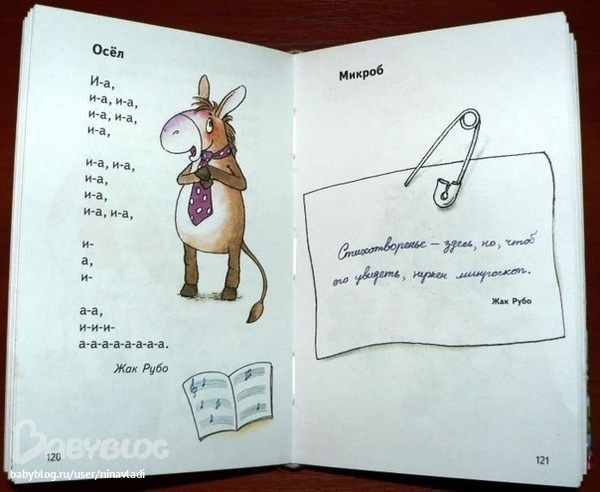 Осёл
И-а,
и-а, и-а,
и-а, и-а,
и-а,
и-а, и-а,
и-а,
и-а,
и-а, и-а,
и-
а,
и-
а-а,
и-и-и-
а-а-а-а-а-а-а-а.
Жак Рубо
120
Микроб
Стихотворенье – здесь, но, чтоб
его увидеть, нужен микроскоп.
Жак Рубо
121
BABYBLOG
babyblog.ru/user/ninavladi